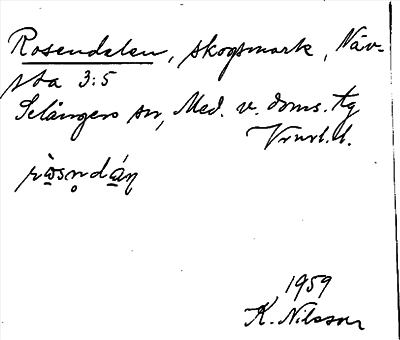 Rosendalen, skogsmark, Näv-
sta 3:5
Selångers sn, Med. v. doms. tg
Vnrl. l.
rò̤sn̥dá̤ṇ
1959
K. Nilsson